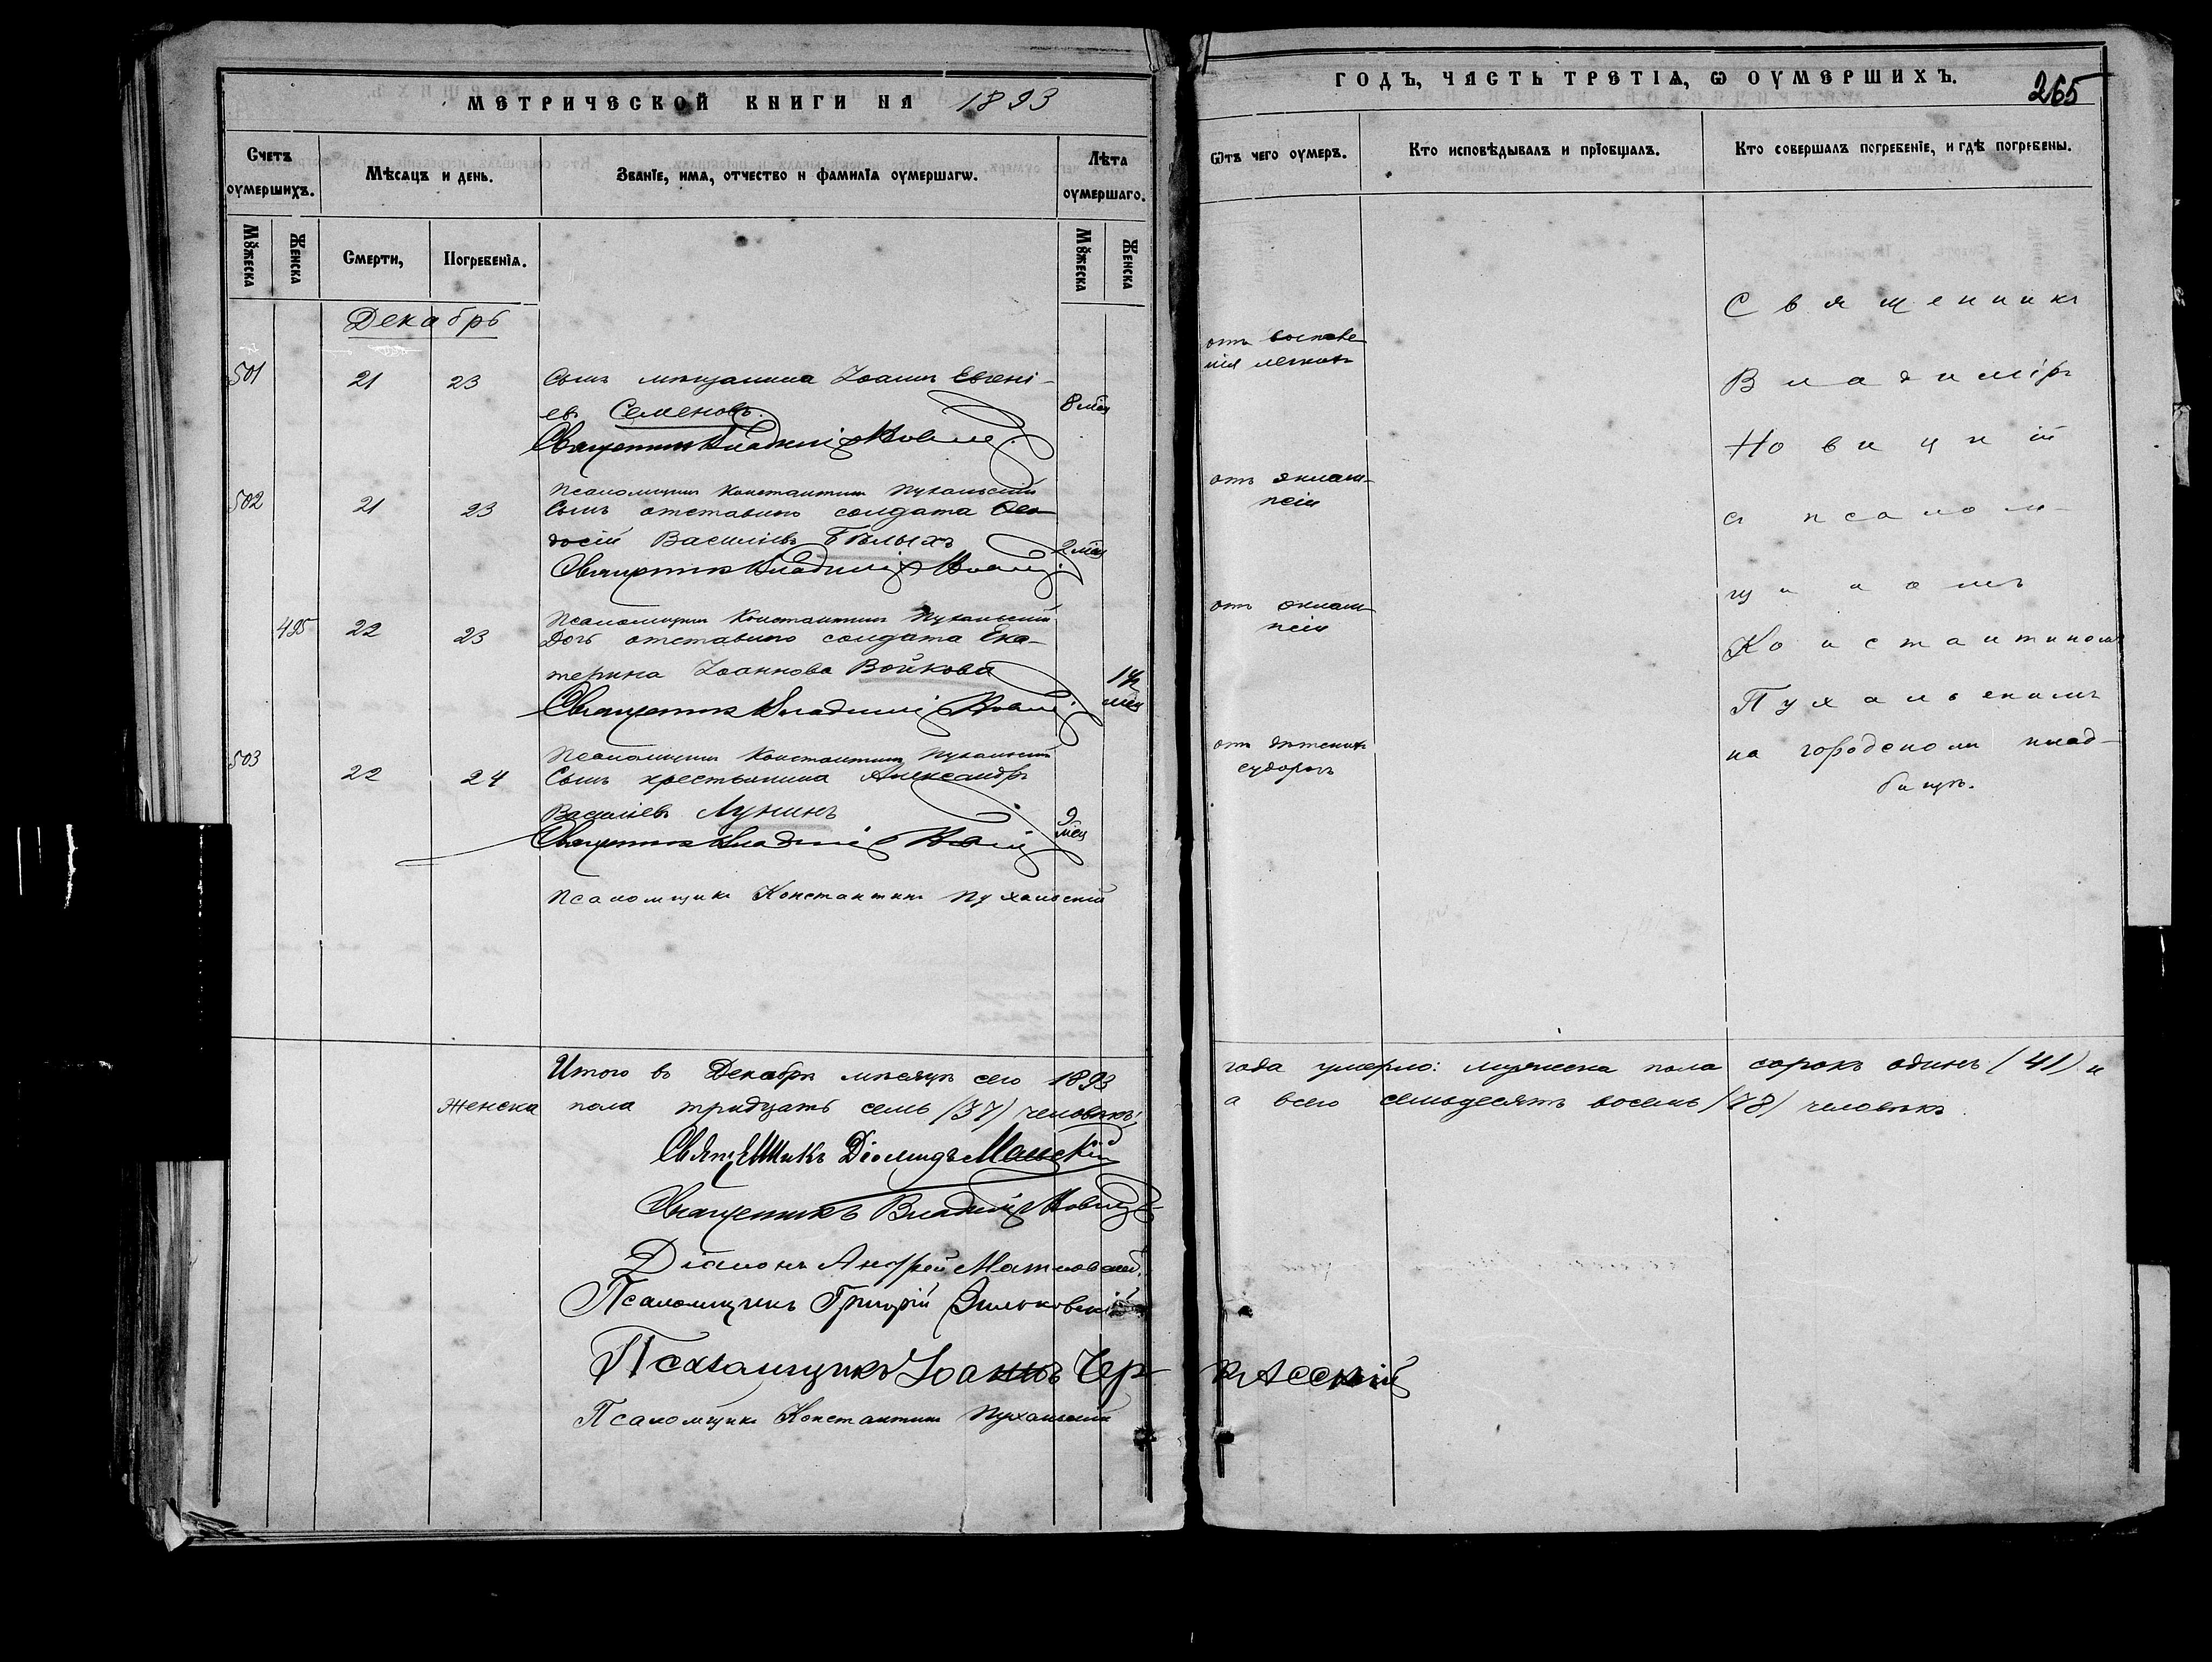 МЕТРИЧЕСКОЙ КНИГИ НА 1893
Счетъ оумершихъ.
Мѣсяцъ и день.
Званіе, имя, отчество и фамилія оумершагѡ.
Лѣта оумершаго.
Мꙋжеска
Женска
Смерти,
Погребенія.
Мꙋжеска
Женска
Декабрь
501 21 23 Сынъ мѣщанина Іоаннъ Евгені-
евъ Семеновъ. 8 мѣс
Священникъ Владиміръ Новицкій
Псаломщикъ Константинъ Пухальскій
502 21 23 Сынъ отставного солдата Ѳео-
досій Василіевъ Бѣлыхъ 2 мѣс
Священникъ Владиміръ Новицкій
Псаломщикъ Константинъ Пухальскій
495 22 23 Дочь отставного солдата Ека-
терина Іоаннова Войкова 1½ мѣс
Священникъ Владиміръ Новицкій
Псаломщикъ Константинъ Пухальскій
503 22 24 Сынъ крестьянина Александръ
Василіевъ Лунинъ 9 мѣс
Священникъ Владиміръ Новицкій
Псаломщикъ Константинъ Пухальскій
Итого въ Декабрѣ мѣсяцѣ сего 1893
женска пола тридцать семь (37) человѣкъ,
Священникъ Діомидъ
Священникъ Владиміръ Новицкій
Діаконъ Андрей
Псаломщикъ Григорій
Псаломщикъ Іоаннъ Чер-
Псаломщикъ Константинъ Пухальскій
ГОДЪ, ЧАСТЬ ТРЕТІЯ, Ѡ ОУМЕРШИХЪ.
265
Ѿтъ чего оумеръ.
Кто исповѣдывалъ и пріобщалъ.
Кто совершалъ погребеніе, и гдѣ погребены.
отъ воспале-
нія легкихъ
отъ эклам-
псіи
отъ эклам-
псіи
отъ дѣтскихъ
судорогъ
Священникъ
Владиміръ
Новицкій
съ псалом-
щикомъ
Константиномъ
Пухальскимъ
на городскомъ клад-
бищѣ.
года умерло: мужеска пола сорокъ одинъ (41) и
а всего семьдесятъ восемь (78) человѣкъ.
касскій